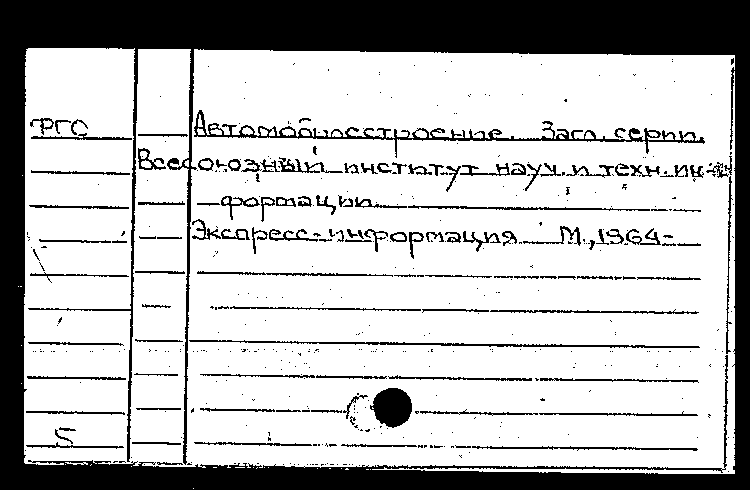 РГО Автомобилестроение. Загл. серии.
Всесоюзный институт науч. и техн. ин-
формации.
Экспресс-информация М., 1964-
5